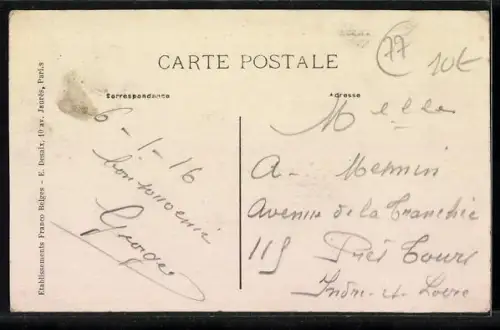 CARTE POSTALE
77
10€
Correspondance
Adresse
6-1-16
bon souvenir
Georges
Melle
A- Mesmin
Avenue de la Tranchée
115 Près Tours
Indre-et-Loire
Etablissements Franco Belges - E. Desaix, 10 av. Jaurès, Paris